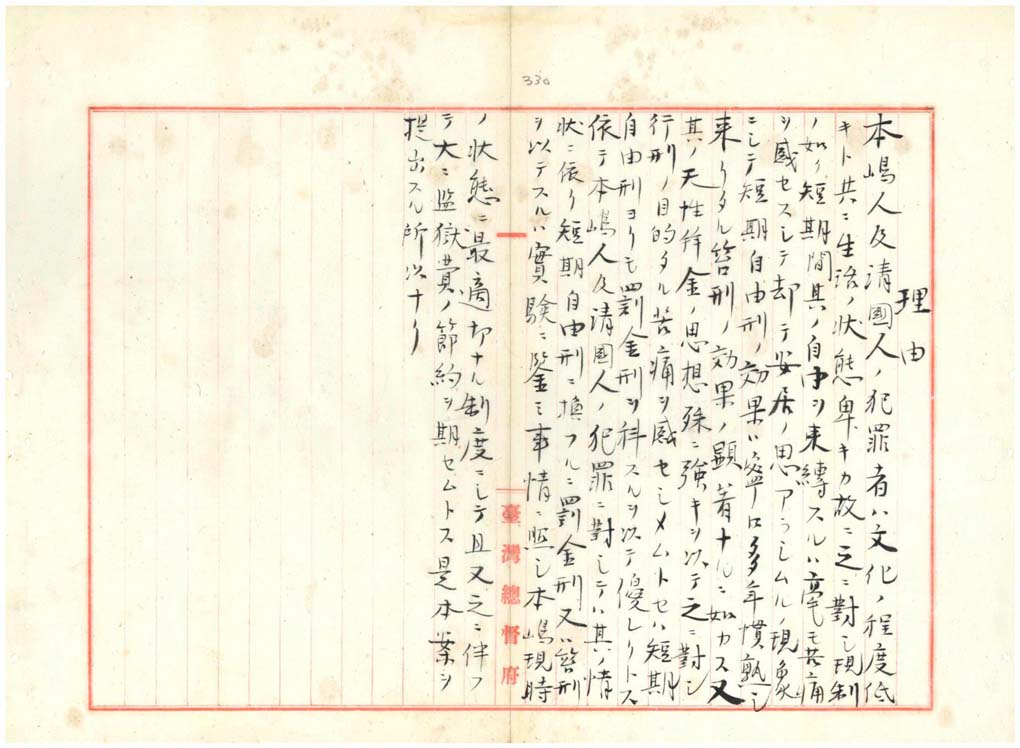 330
理由
本嶋人及清國人ノ犯罪者ハ文化ノ程度低
キト共ニ生活ノ状態卑キカ故ニ之ニ對シ現制
ノ如ク短期間其ノ自由ヲ束縛スルハ毫モ苦痛
ヲ感セスシテ却テ安居ノ思アラシムルノ現象
ニシテ短期自由刑ノ効果ハ寧ロ多年慣熟シ
来リタル笞刑ノ効果ノ顕著ナルニ如カス又
其ノ天性錢金ノ思想殊ニ強キヲ以テ之ニ對シ
行刑ノ目的タル苦痛ヲ感セシメムトセハ短期
自由刑ヨリモ罰金刑ヲ科スルヲ以テ優レリトス
依テ本嶋人及清國人ノ犯罪ニ對シテハ其ノ情
状ニ依リ短期自由刑ニ換フルニ罰金刑又ハ笞刑
ヲ以テスルハ實験ニ鑒ミ事情ニ照シ本嶋現時
ノ状態ニ最適切ナル制度ニシテ且又之ニ伴フ
テ大ニ監獄費ノ節約ヲ期セムトス是本案ヲ
提出スル所以ナリ
臺灣總督府